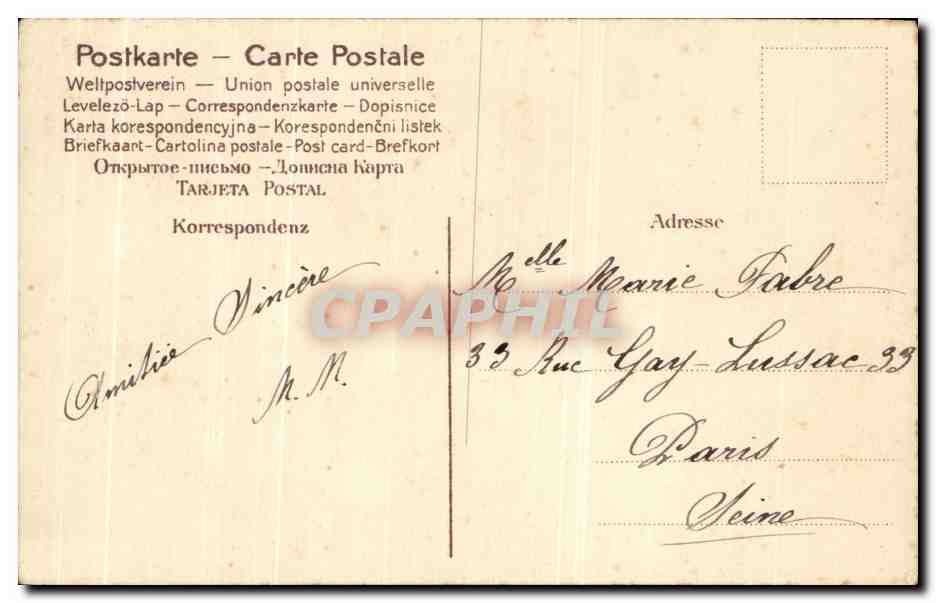 Postkarte – Carte Postale
Weltpostverein — Union postale universelle
Levelező-Lap – Correspondenzkarte – Dopisnice
Karta korespondencyjna – Korespondenčni listek
Briefkaart - Cartolina postale - Post card - Brefkort
Открытое-письмо – Дописна Карта
TARJETA POSTAL
Korrespondenz
Amitiée Sincère
M. M.
Adresse
Melle Marie Fabre
33 Rue Gay-Lussac 33
Paris
Seine
CPAPHIL